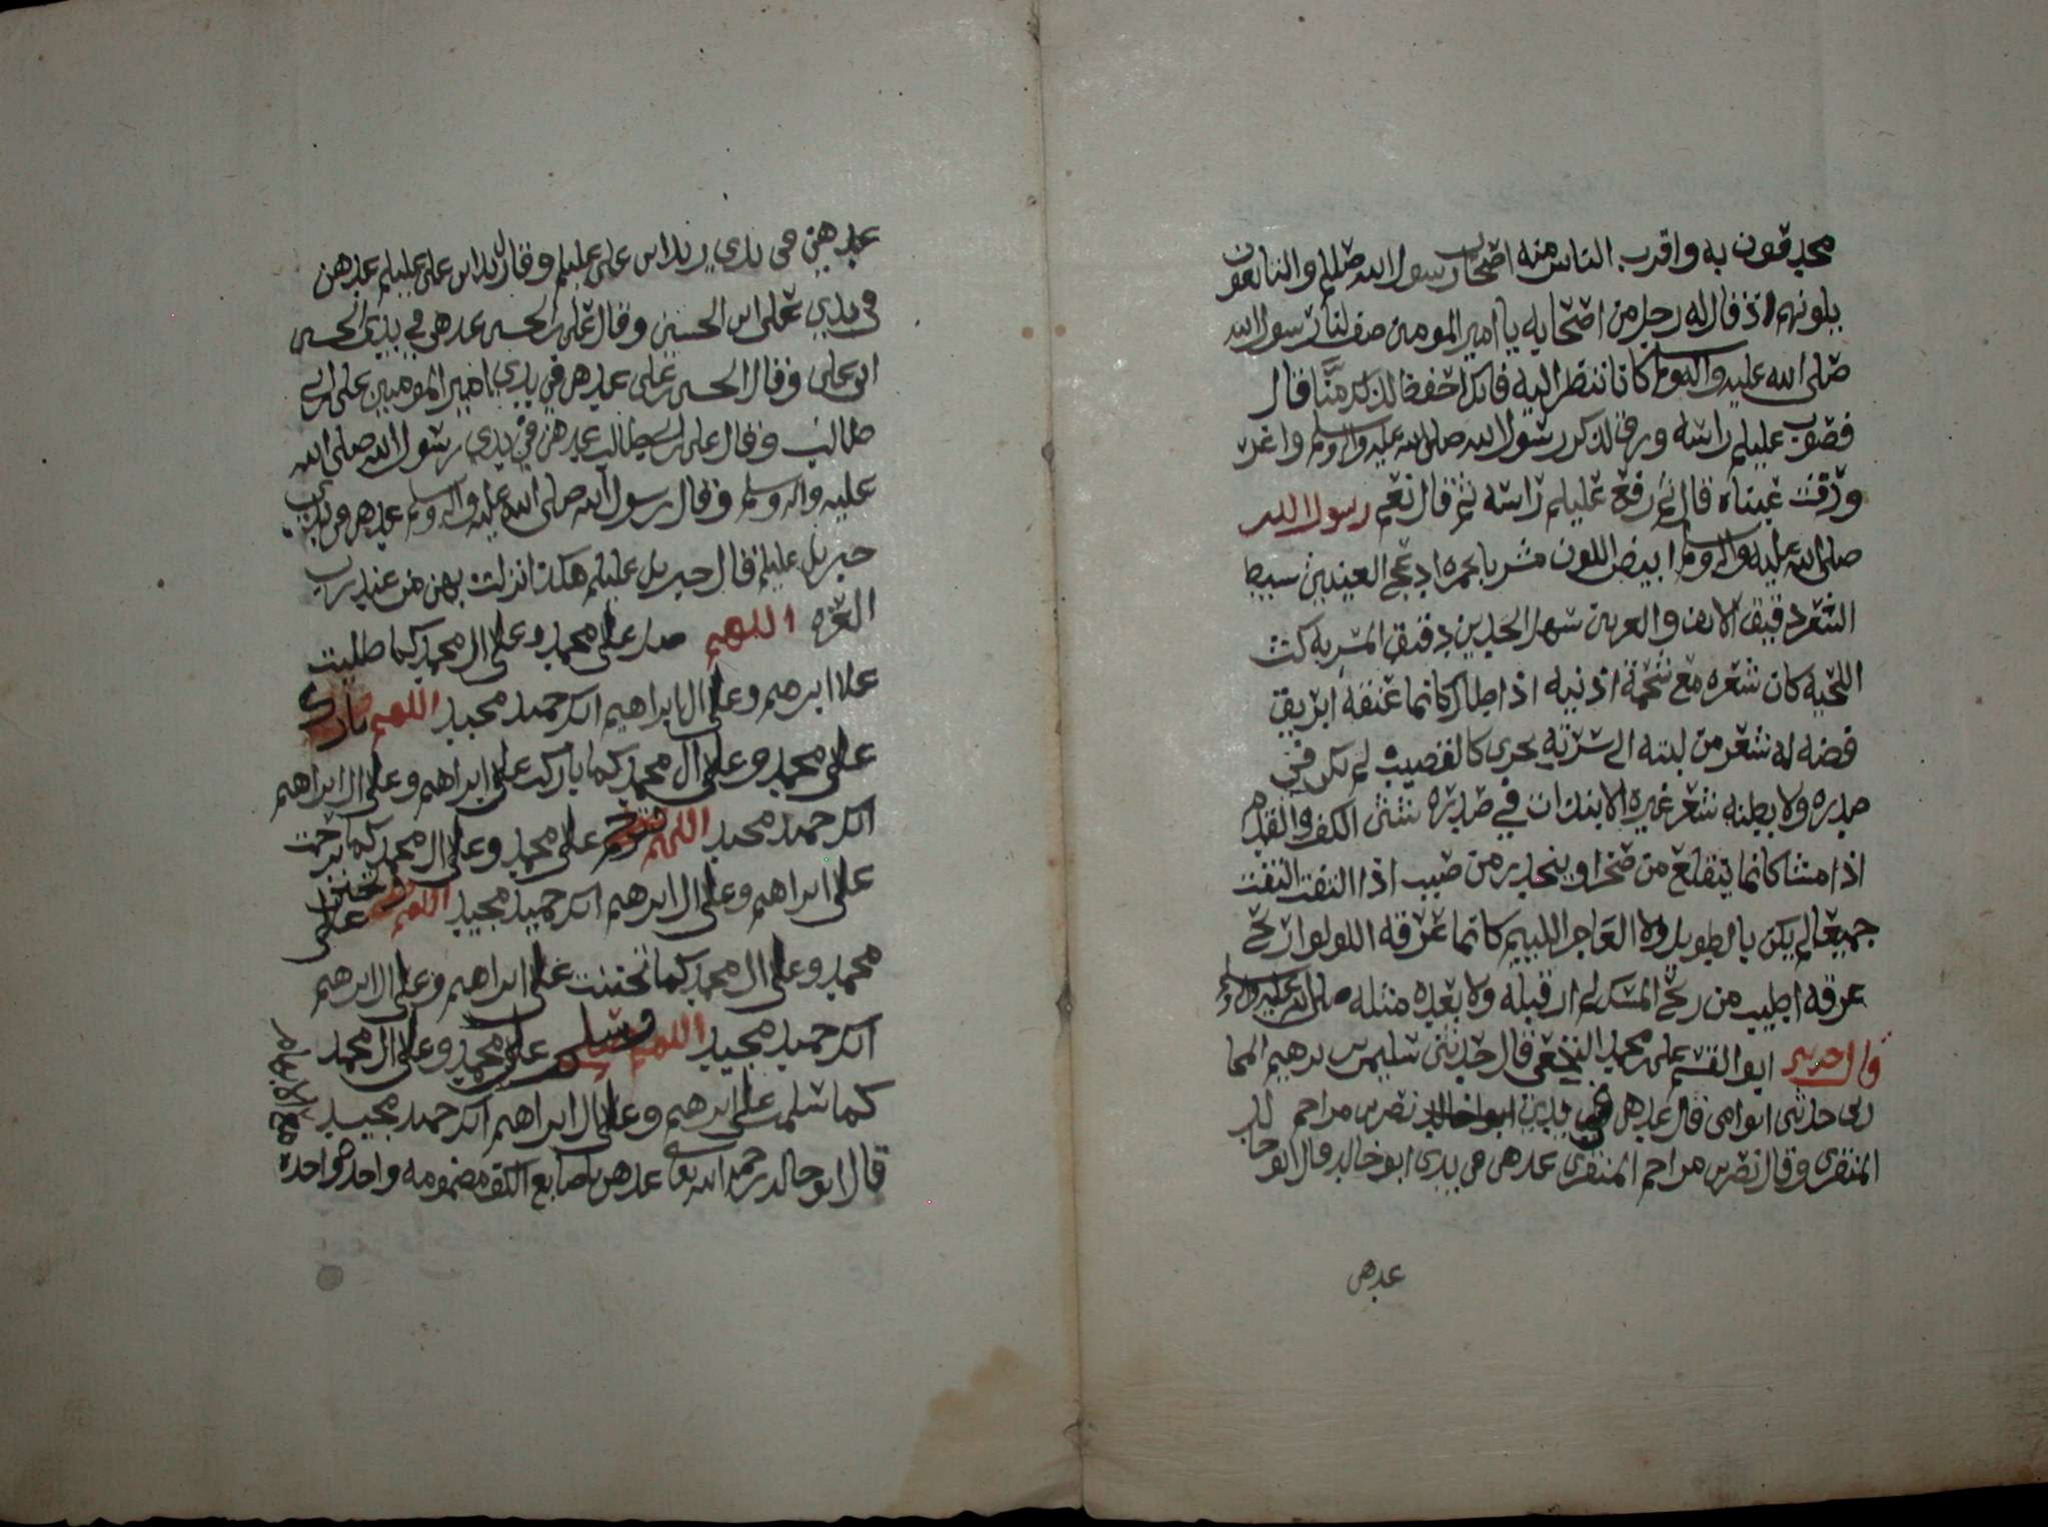 محدقون به واقرب الناس منه اصحاب رسول الله صللم والتابعون
يلونهم اذ قال له رجل من اصحابه يا امير المومنين صف لنا رسول الله
صلى الله عليه واله وسلم كانا ننظر اليه فانك احفظ لذلك منا قال
فصوب عليلم راسه ورق لذكر رسول الله صلى الله عليه واله وسلم واغر
ورقت عيناه قال ثم رفع عليلم راسه ثم قال نعم رسول الله
صلى الله عليه واله وسلم ابيض اللون مشربا حمره ادعج العينين سبط
الشعر دقيق الانف والعرنين سهل الخدين دقيق المسربه كث
اللحيه كان شعره مع شحمة اذنيه اذا طال كانما عنقه ابريق
فضه له شعر من لبته الى سرته يجرى كالقضيب لم يكن في
صدره ولا بطنه شعر غيره الا نبذات في صدره شثن الكف والقدم
اذا مشا كانما يتقلع من صخر او ينحدر من صبب اذا التفت التفت
جميعا لم يكن بالطويل ولا العاجز اللييم كانما عرقه اللولو اريح
عرقه اطيب من ريح المسك لم ار قبله ولا بعده مثله صلى الله عليه واله وسلم
قال حدثنى ابو القسم على محمد النخعى قال حدثنى سليمن بن ابرهيم المحا
ربى حدثنى ابو امى قال عدهن في يدي نصر بن مزاحم
المنقرى وقال نصر بن مزاحم المنقرى عدهن في يدى ابو خالد وقال ابو خالد
عدهن
عدهن في يدي زيد ابن على عليلم وقال زيد ابن على عليلم عدهن
في يدي على ابن الحسين وقال على بن الحسين عدهن في يدي الحسين
ابن على وقال الحسين بن على عدهن في يدي امير المومنين على ابن ابي
طالب وقال على بن ابي طالب عدهن في يدي رسول الله صلى الله
عليه واله وسلم وقال رسول الله صلى الله عليه واله وسلم عدهن في يدي
جبريل عليلم قال جبريل عليلم هكذا نزلت بهن من عند رب
العزه اللهم صل على محمد وعلى ال محمد كما صليت
على ابرهيم وعلى ال ابراهيم انك حميد مجيد اللهم بارك
على محمد وعلى ال محمد كما باركت على ابراهيم وعلى ال ابراهيم
انك حميد مجيد اللهم وترحم على محمد وعلى ال محمد كما ترحمت
على ابراهيم وعلى ال ابرهيم انك حميد مجيد اللهم وتحنن على
محمد وعلى ال محمد كما تحننت على ابراهيم وعلى ال ابرهيم
انك حميد مجيد اللهم وسلم على محمد وعلى ال محمد
كما سلمت على ابرهيم وعلى ال ابراهيم انك حميد مجيد
قال ابو خالد رحمه الله تعالى عدهن باصابع الكف مضمومه واحده واحده
مع الابهام